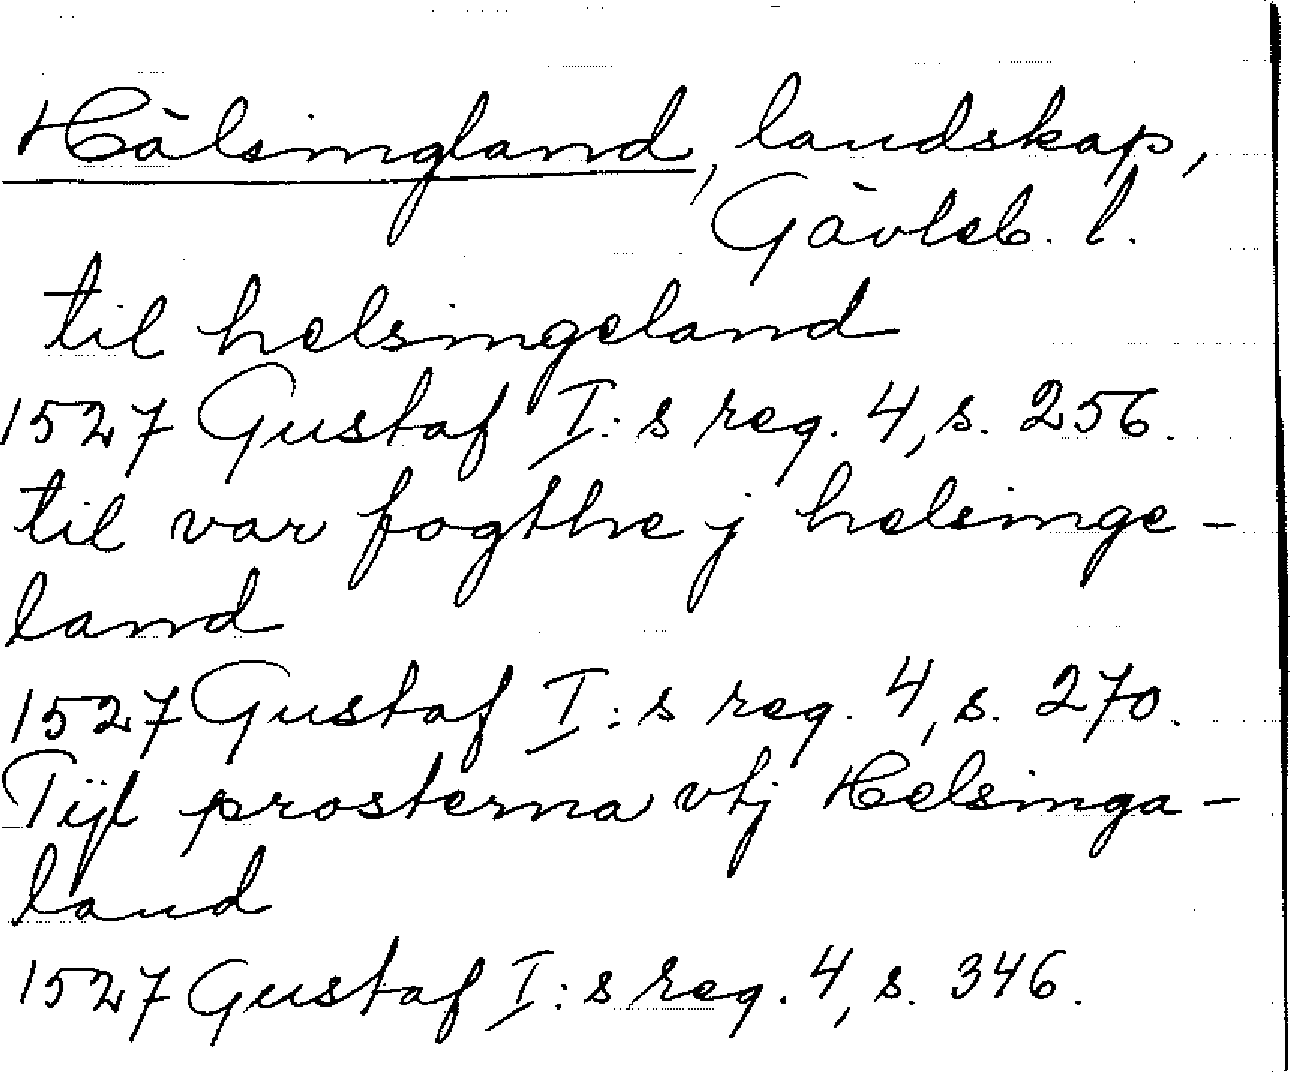 Hälsingland, landskap,
Gävleb. l.
til helsingeland
1527 Gustaf I:s reg. 4, s. 256.
til var fogthe j helsinge-
land
1527 Gustaf I:s reg. 4, s. 270.
Tijl prosterna vtj Helsinga-
land
1527 Gustaf I:s reg. 4, s. 346.